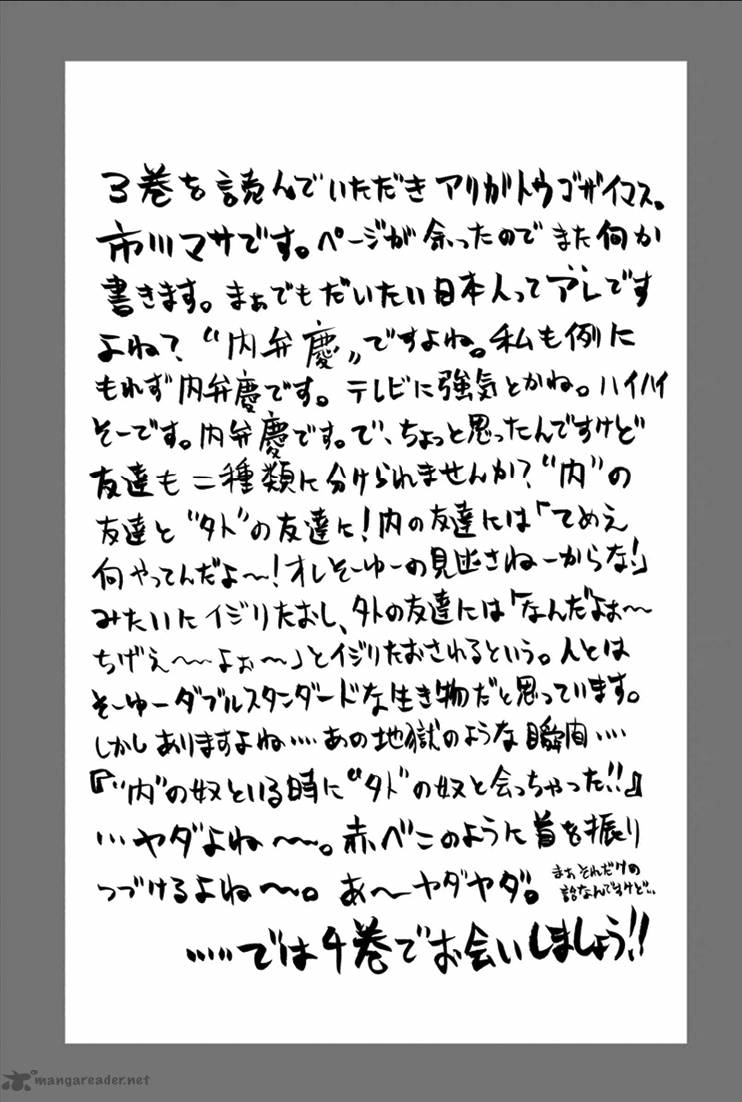 3巻を読んでいただきアリガトウゴザイマス。
市川マサです。ページが余ったのでまた何か
書きます。まぁでもだいたい日本人ってアレです
よね？“内弁慶”ですよね。私も例に
もれず内弁慶です。テレビに強気とかね。ハイハイ
そーです。内弁慶です。で、ちょっと思ったんですけど
友達も二種類に分けられませんか？“内”の
友達と“外”の友達に！内の友達には「てめえ
何やってんだよ〜！オレそーゆーの見逃さねーからな！」
みたいにイジりたおし、外の友達には「なんだよぉ〜
ちげぇ〜〜よぉ〜」とイジりたおされるという。人とは
そーゆーダブルスタンダードな生き物だと思っています。
しかしありますよね‥‥あの地獄のような瞬間‥‥
『“内”の奴といる時に“外”の奴と会っちゃった!!』
…ヤダよね〜〜。赤べこのように首を振り
つづけるよね〜〜。あ〜ヤダヤダ。まぁそれだけの
話なんですけど…
……では4巻でお会いしましょう!!
mangareader.net